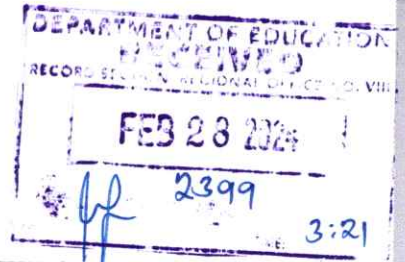 DEPARTMENT OF EDUCATION
RECEIVED
RECORD SECTION, REGIONAL OFFICE NO. VIII
FEB 28
2399
3:21